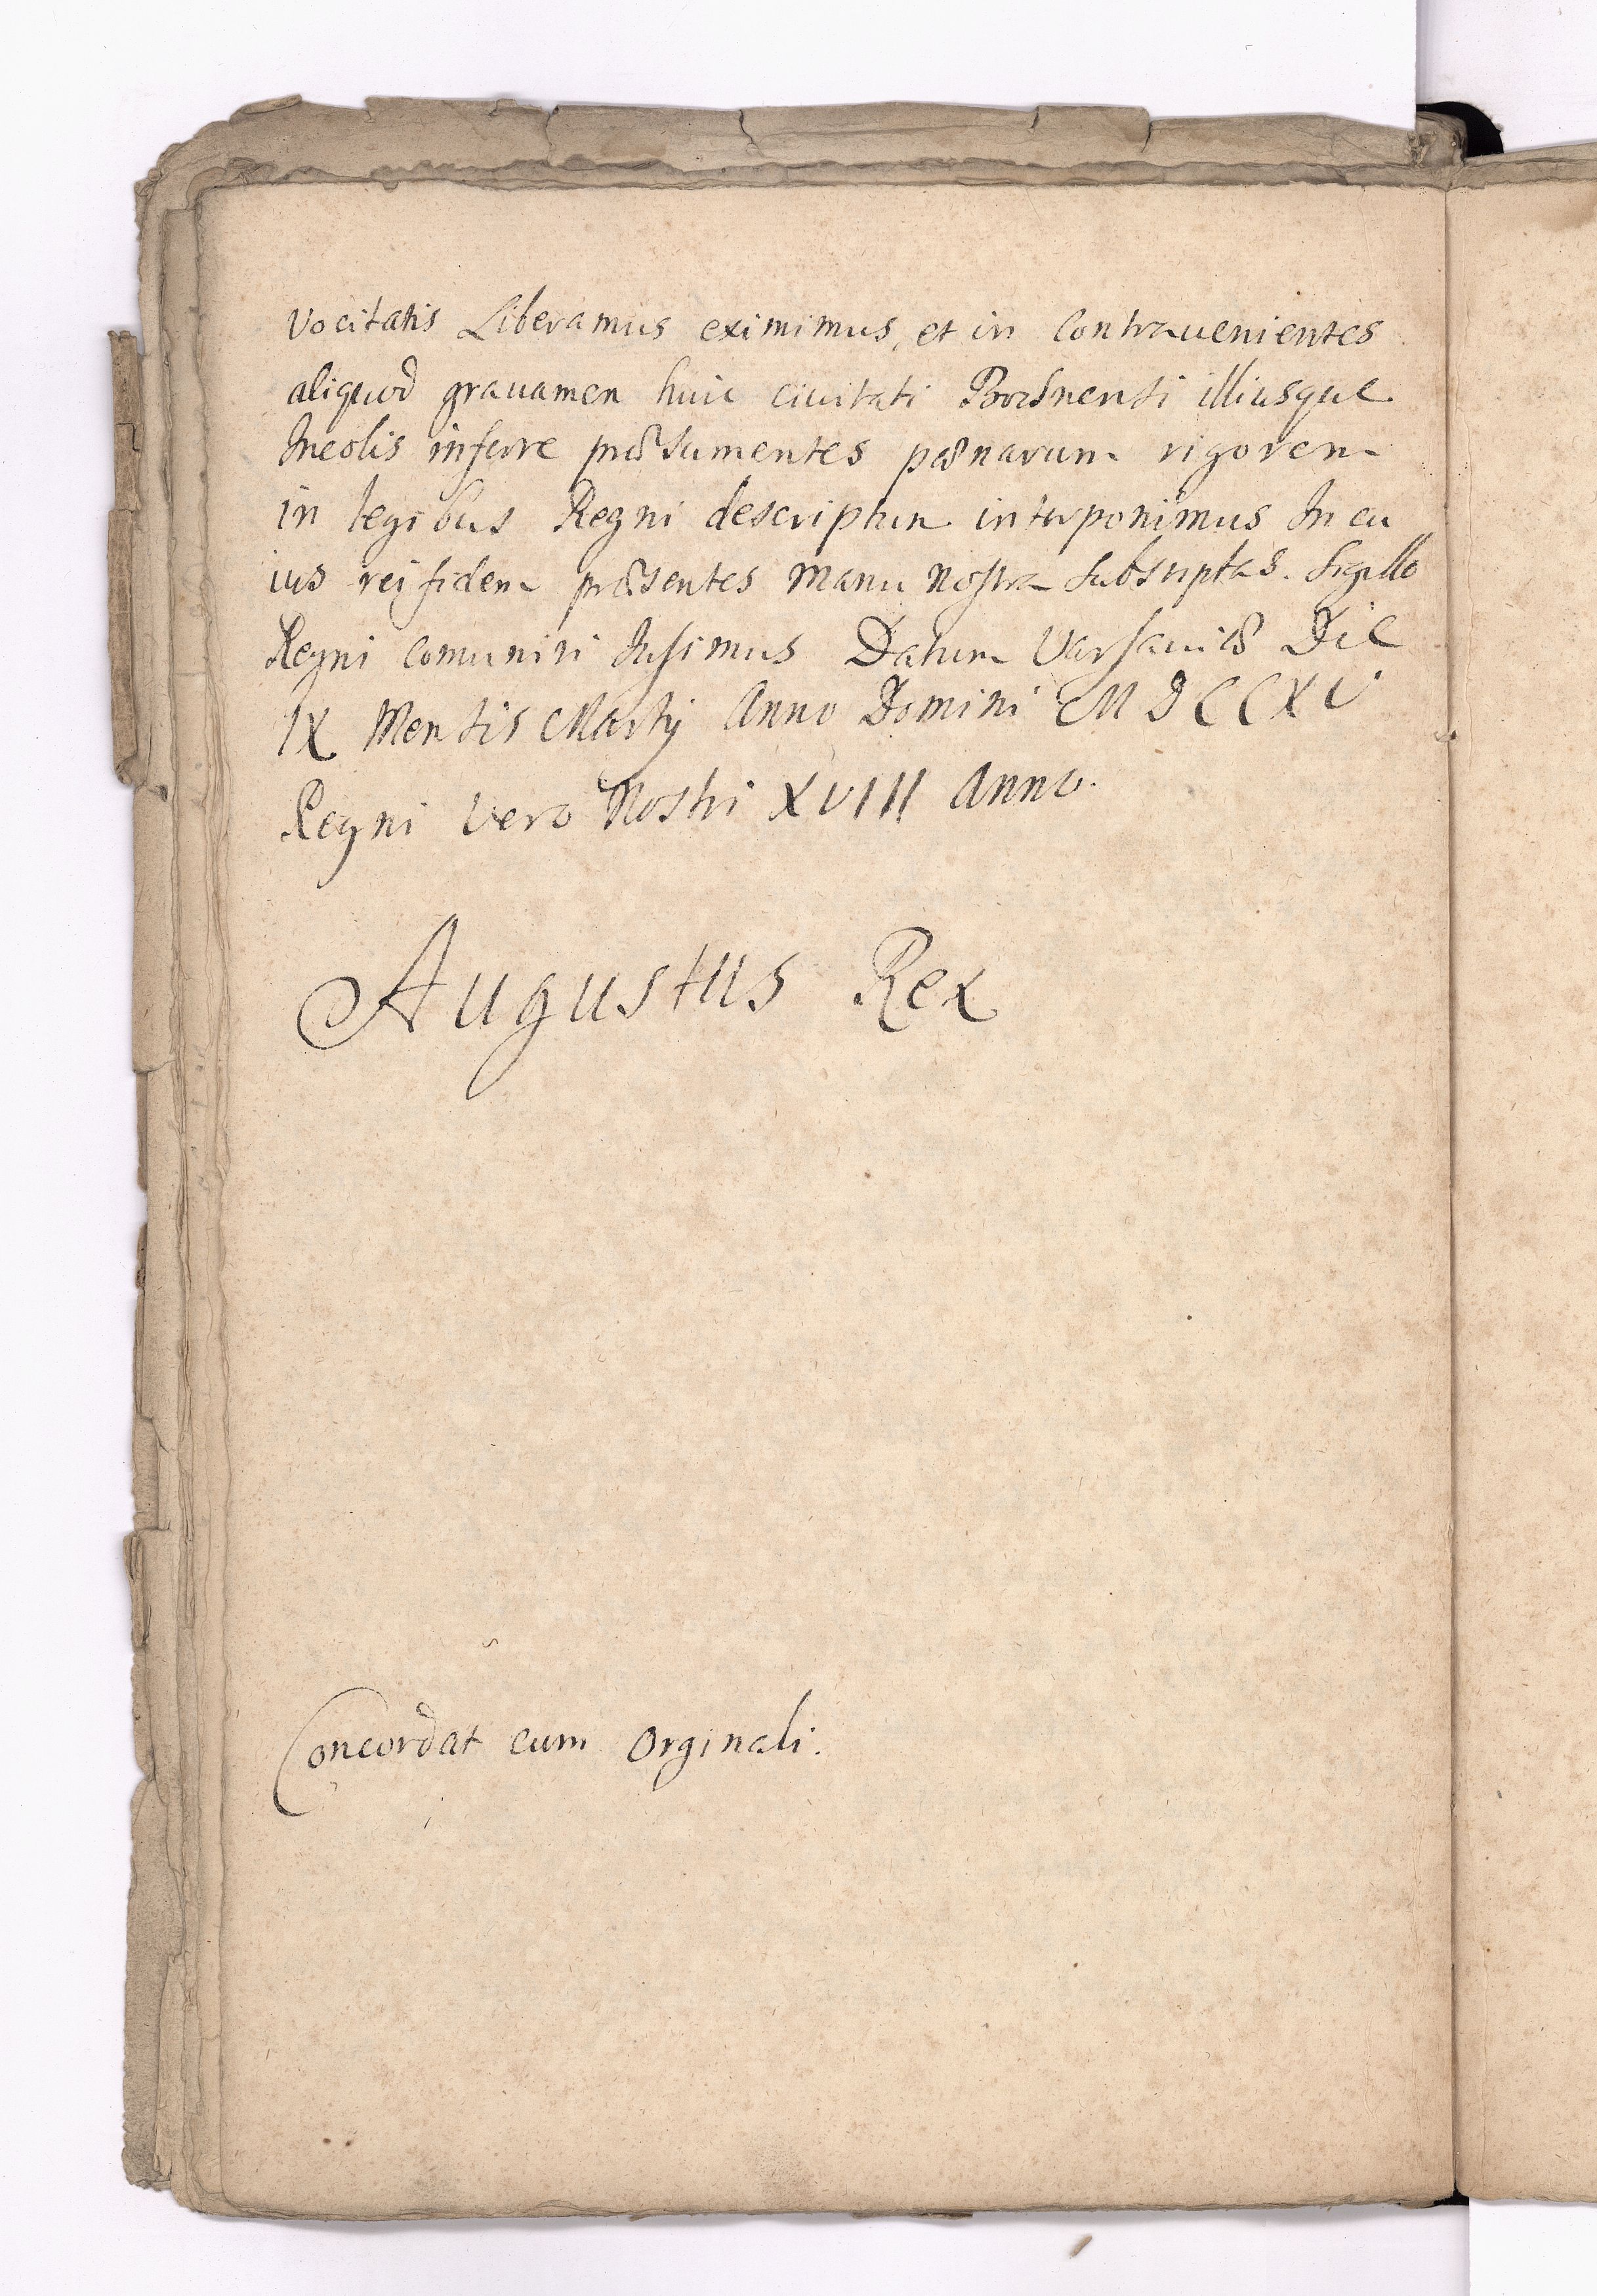 vocitatis Liberamus eximimus, et in Contravenientes
aliquod gravamen huic civitati illiusque
Incolis inferre præsumentes pænarum rigorem
in legibus Regni descriptum interponimus In cu
ius rei fidem præsentes Manu Nostra Subscriptas. Sigillo
Regni Comuniri Jussimus Datum Varsaviæ Die
IX Mensis Martij Anno Domini MDCCXV
Regni Vero Nostri XVIII Anno.
Augustus Rex
Concordat cum Orginali.